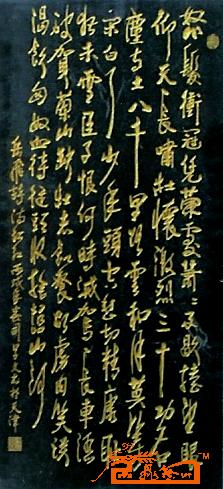 怒髮衝冠憑蘭處瀟瀟雨歇擡望眼
仰天長嘯壯懷激烈三十功名
塵與土八千里路雲和月莫等閒
白了少年頭空悲切靖康恥
猶未雪臣子恨何時滅駕長車踏
破賀蘭山缺壯志飢餐胡虜肉笑談
渴飲匈奴血待從頭收拾舊山河
岳飛詩滿江紅 天津